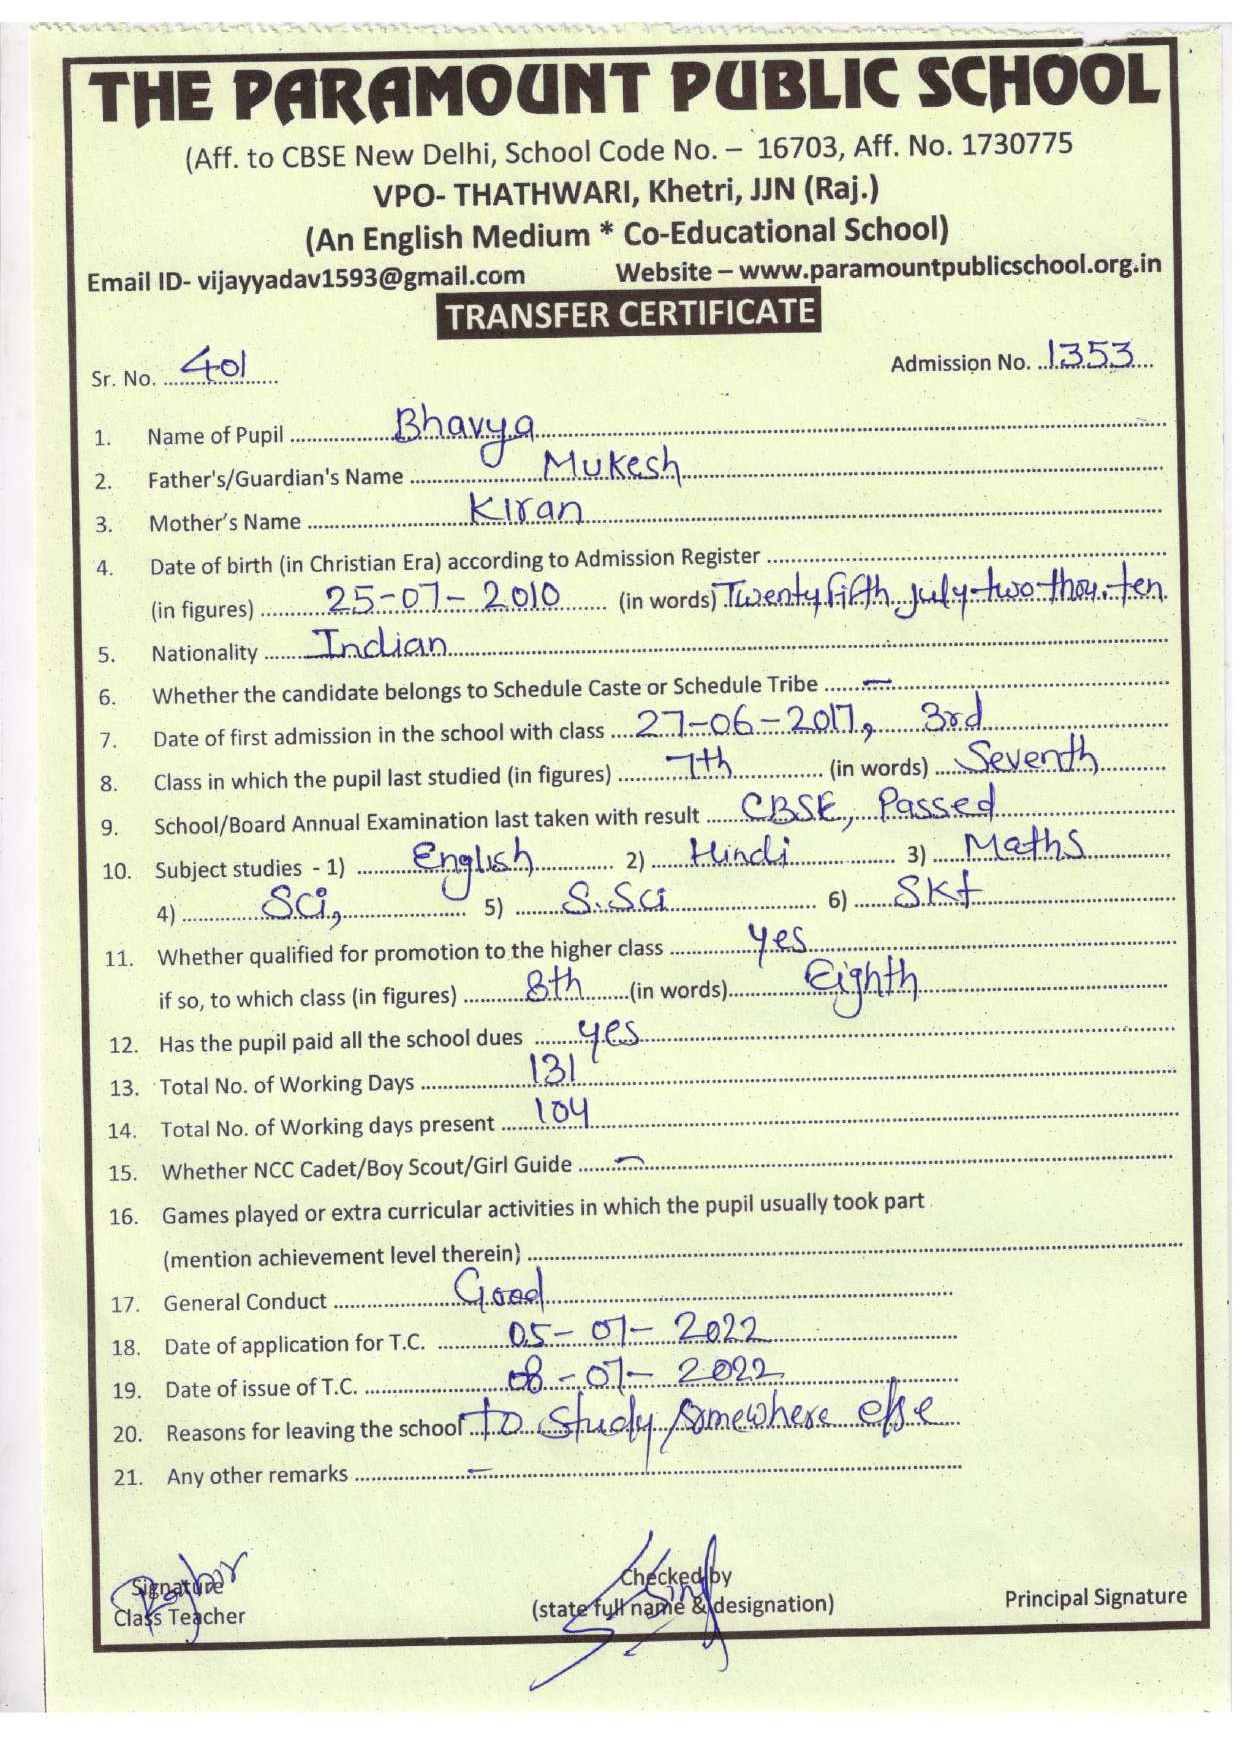 THE PARAMOUNT PUBLIC SCHOOL
(Aff. to CBSE New Delhi, School Code No. – 16703, Aff. No. 1730775
VPO- THATHWARI, Khetri, JJN (Raj.)
(An English Medium * Co-Educational School)
Email ID- vijayyadav1593@gmail.com Website – www.paramountpublicschool.org.in
TRANSFER CERTIFICATE
Sr. No. 401 Admission No. 1353
1. Name of Pupil Bhavya
2. Father's/Guardian's Name Mukesh
3. Mother's Name Kiran
4. Date of birth (in Christian Era) according to Admission Register
(in figures) 25-07-2010 (in words) Twenty fifth july two thou. ten
5. Nationality Indian
6. Whether the candidate belongs to Schedule Caste or Schedule Tribe –
7. Date of first admission in the school with class 27-06-2017, 3rd
8. Class in which the pupil last studied (in figures) 7th (in words) Seventh
9. School/Board Annual Examination last taken with result CBSE, Passed
10. Subject studies - 1) English 2) Hindi 3) Maths
4) Sci, 5) S.Sci 6) Skt
11. Whether qualified for promotion to the higher class yes
if so, to which class (in figures) 8th (in words) Eighth
12. Has the pupil paid all the school dues yes
13. Total No. of Working Days 131
14. Total No. of Working days present 104
15. Whether NCC Cadet/Boy Scout/Girl Guide –
16. Games played or extra curricular activities in which the pupil usually took part
(mention achievement level therein)
17. General Conduct Good
18. Date of application for T.C. 05-07-2022
19. Date of issue of T.C. 08-07-2022
20. Reasons for leaving the school to study somewhere else
21. Any other remarks –
Signature Checked by
Class Teacher (state full name & designation) Principal Signature